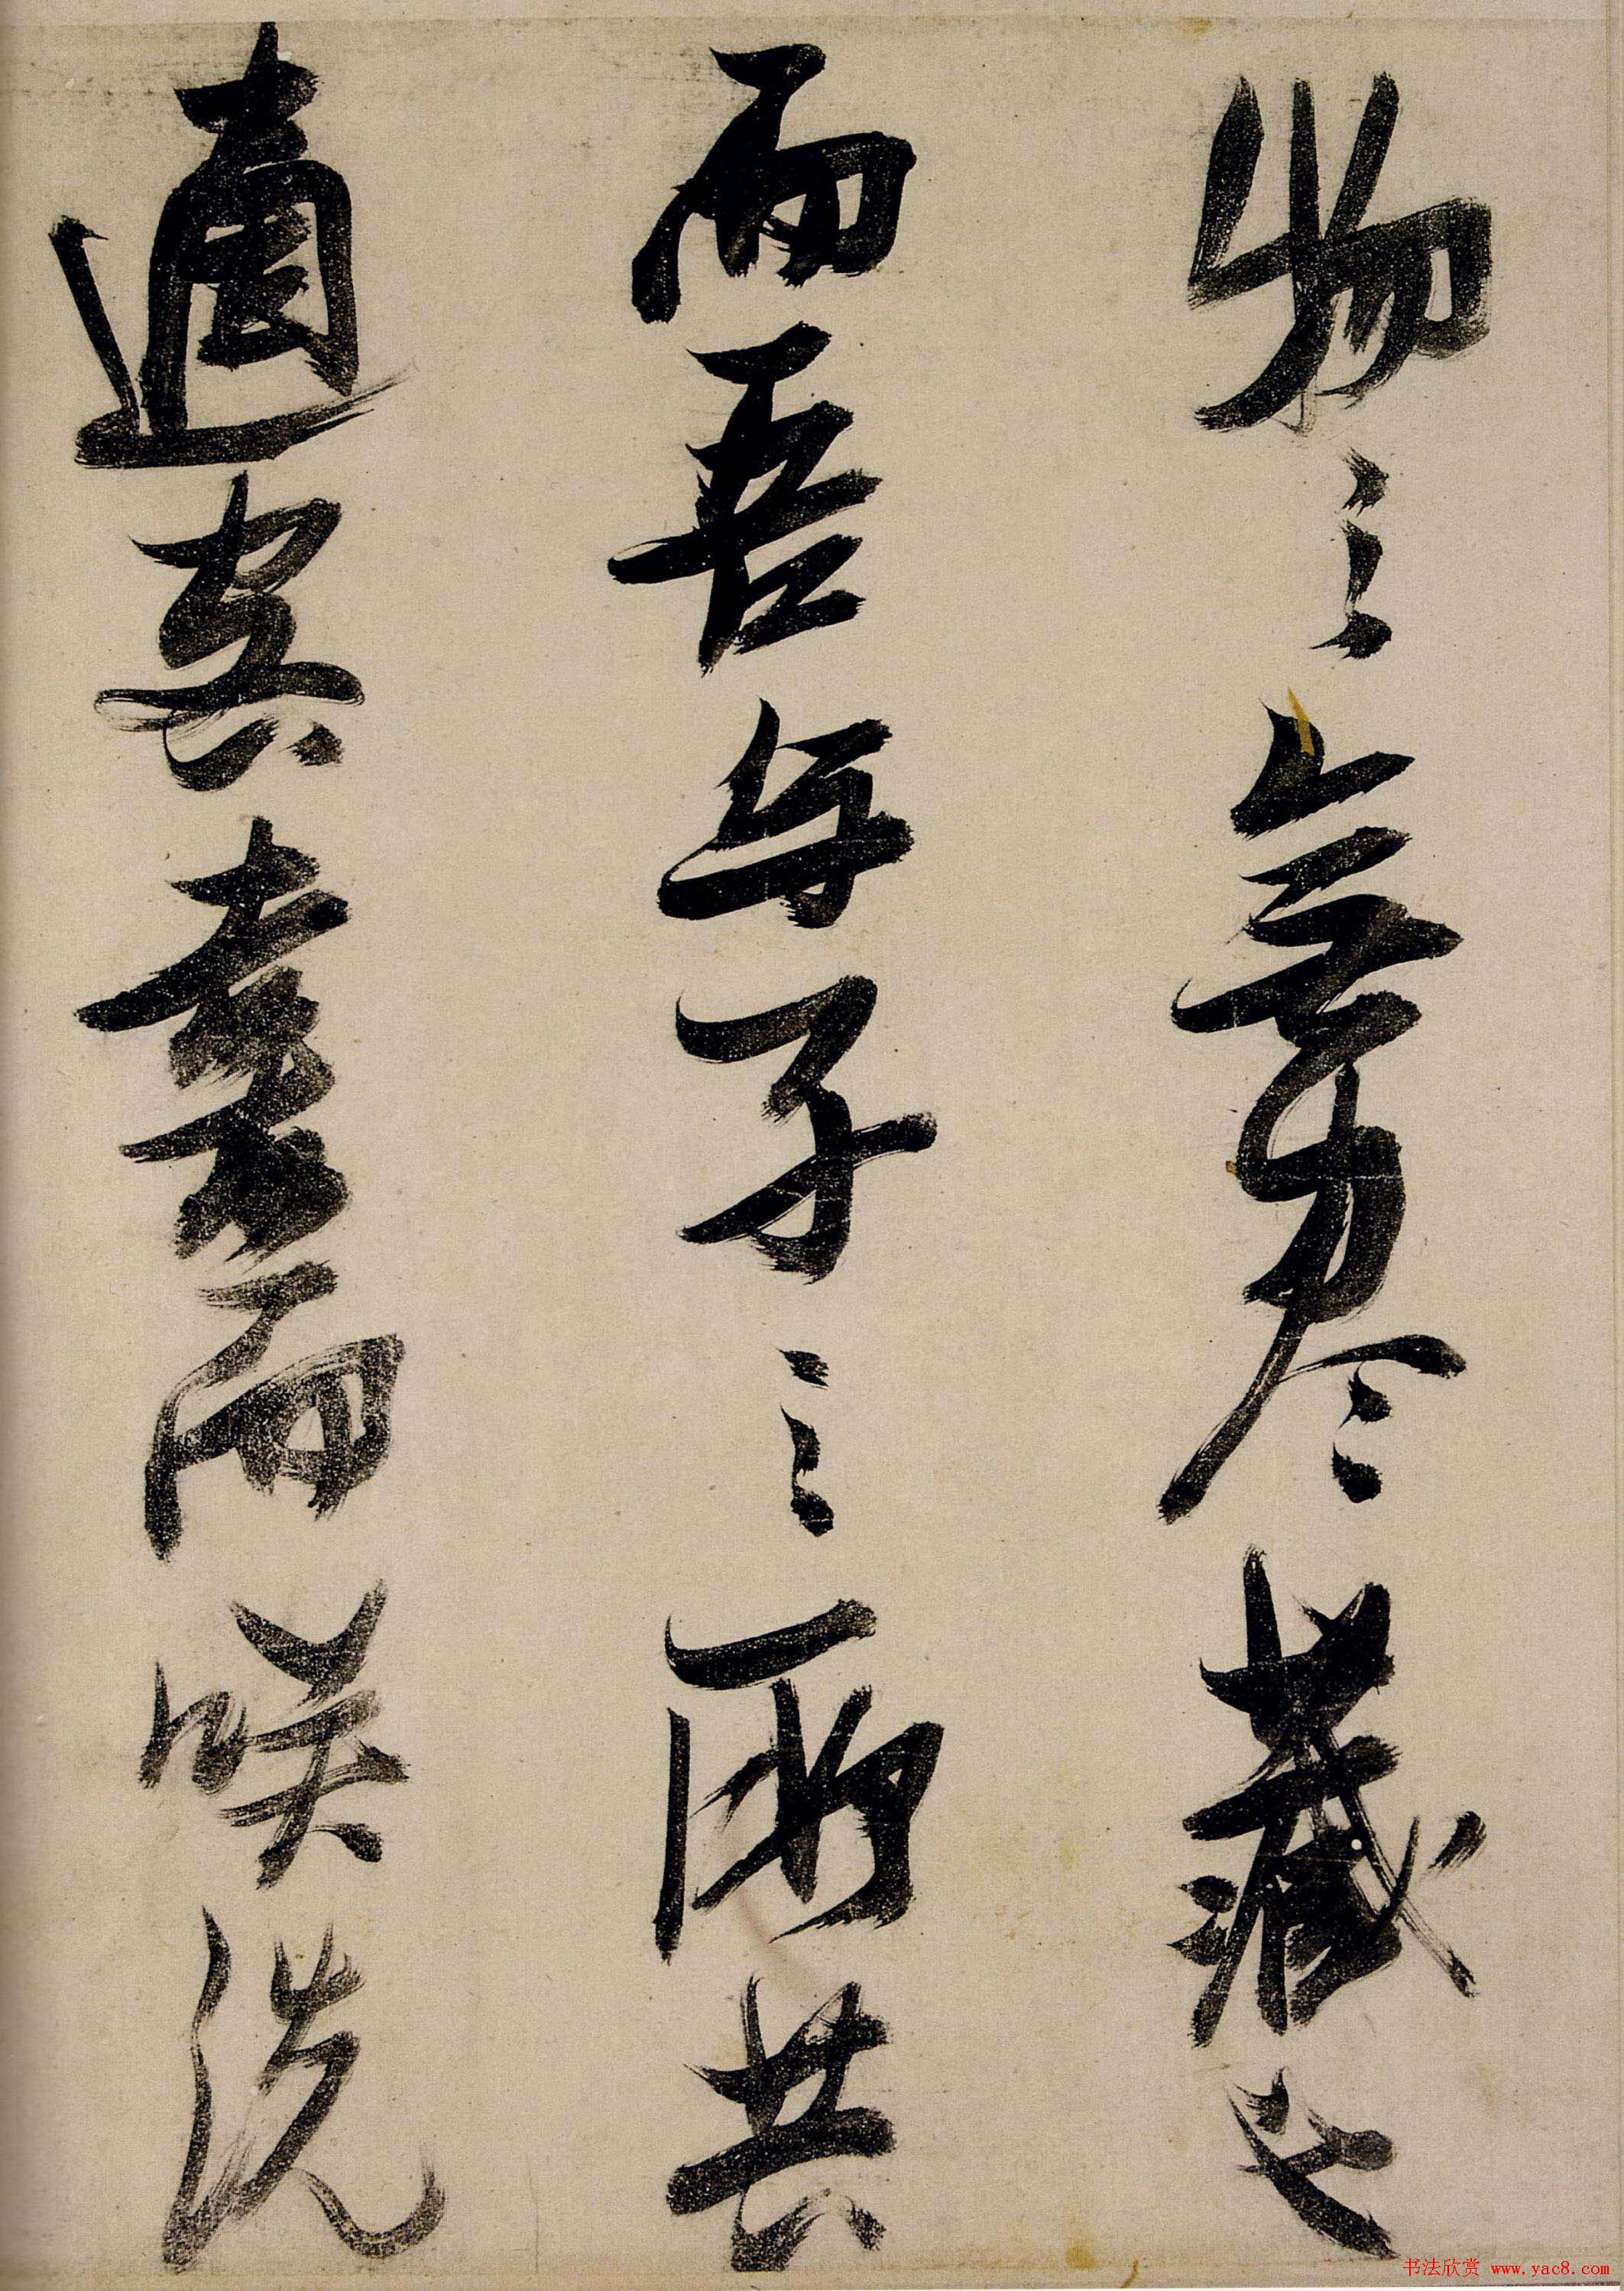 物之無盡藏也
而吾与子之所共
適客喜而咲洗
书法欣赏 www.yac8.com